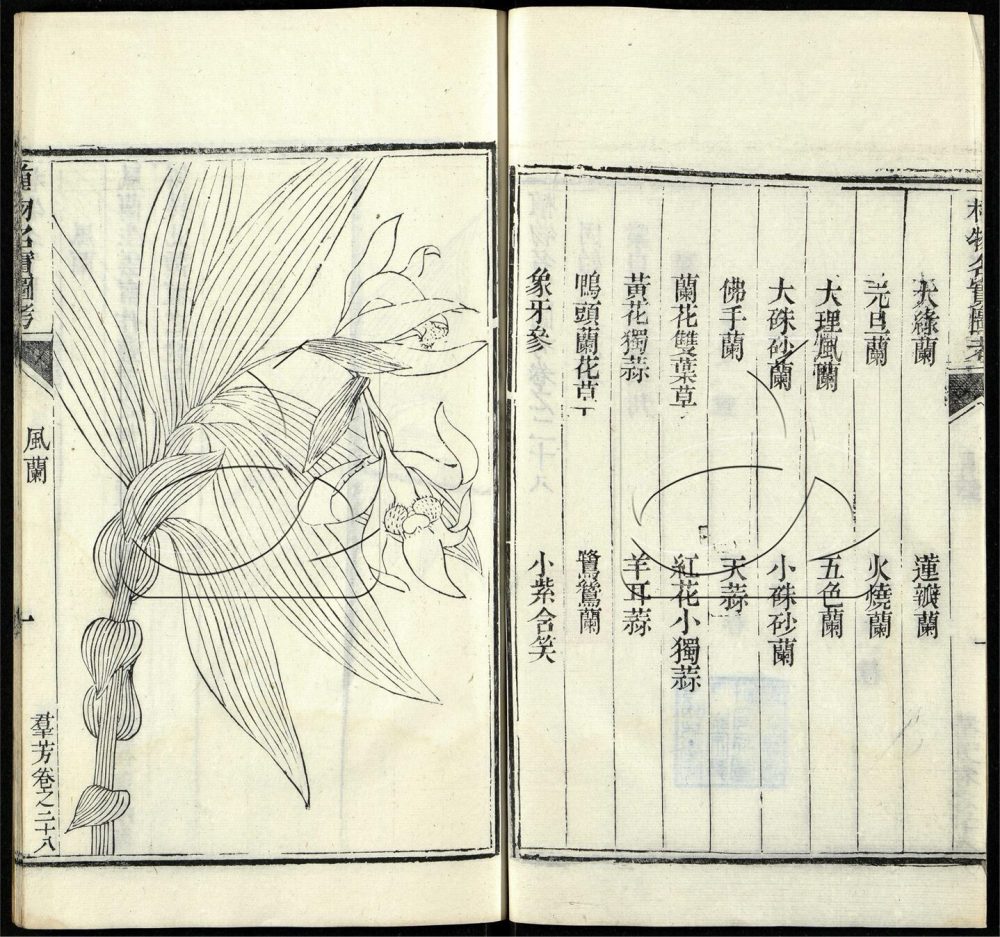 植物名實圖考
大綠蘭 蓮瓣蘭
元旦蘭 火燒蘭
大理風蘭 五色蘭
大硃砂蘭 小硃砂蘭
佛手蘭 天蒜
蘭花雙葉草 紅花小獨蒜
黃花獨蒜 羊耳蒜
鴨頭蘭花草 鷺鷥蘭
象牙參 小紫含笑
植物名實圖考
風蘭
一
羣芳卷之二十八